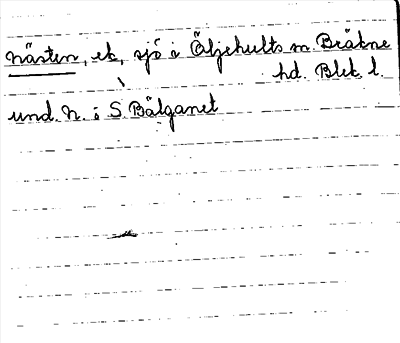 Nästen, ek, sjö i Öljehults sn. Bräkne
hd. Blek. l.
und. n. i S. Bälganet